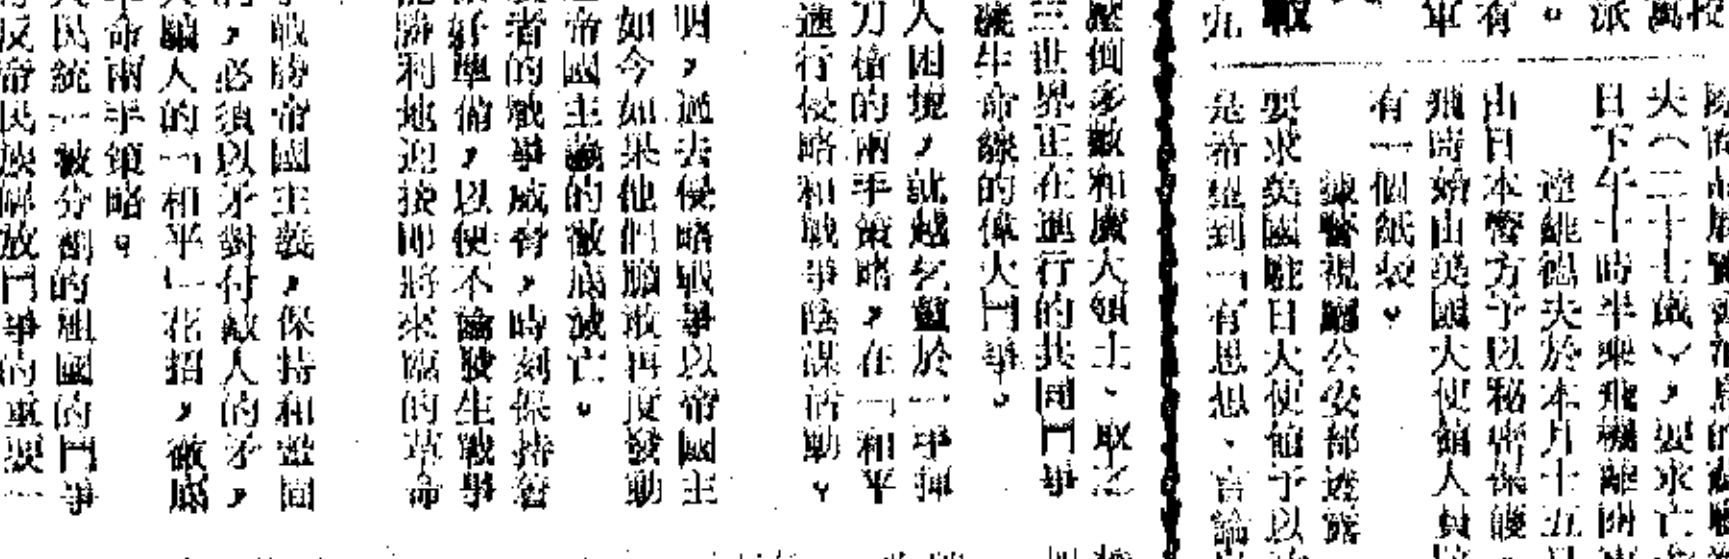 萬
派
有
軍
戰
九
夫(二十七歲),要求亡
日下午十時半乘飛機離開
達維德夫於本月十五
由日本警方予以秘密保護
飛時始由美國大使館人員
有一個紙袋。
據警視廳公安部透露
要求美國駐日大使館予以
是希望到「有思想、言論
壓倒多數和廣大領土、取之
三世界正在進行的共同鬥爭
義生命線的偉大鬥爭。
人困境,就越乞靈於一手揮
刀槍的兩手策略,在「和平
進行侵略和戰爭陰謀活動。
明,過去侵略戰爭以帝國主
如今如果他們膽敢再度發動
帝國主義的徹底滅亡。
者的戰爭威脅,時刻保持着
好準備,以便不論發生戰爭
勝利地迎接即將來臨的革命
戰勝帝國主義,保持和鞏固
,必須以矛對付敵人的矛,
人的「和平」花招,徹底
命兩手策略。
民統一被分割的祖國的鬥爭
反帝民族解放鬥爭的重要一